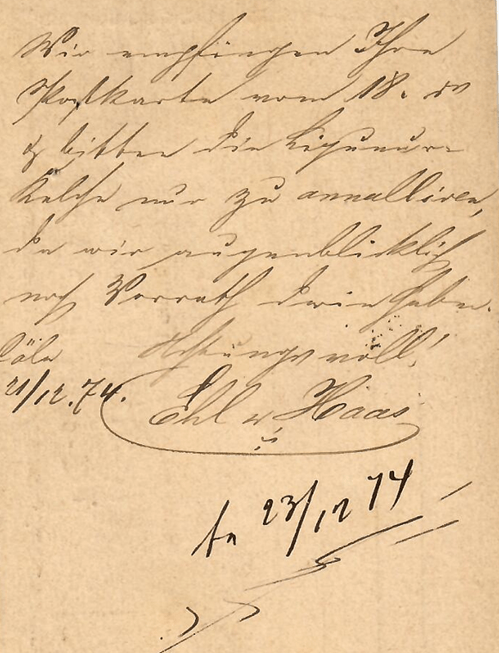 Wir empfingen Ihre
Postkarte vom 18. ds
& bitten die
Kelche nur zu annulliren,
da wir augenblicklich
noch Vorrath darin haben.
Achtungsvoll!
21/12.74.
Ehl & Haas
23/12 74